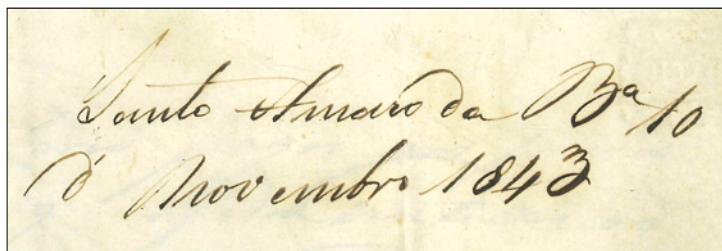 Santo Amaro da Bª 10
d' Novembro 1843